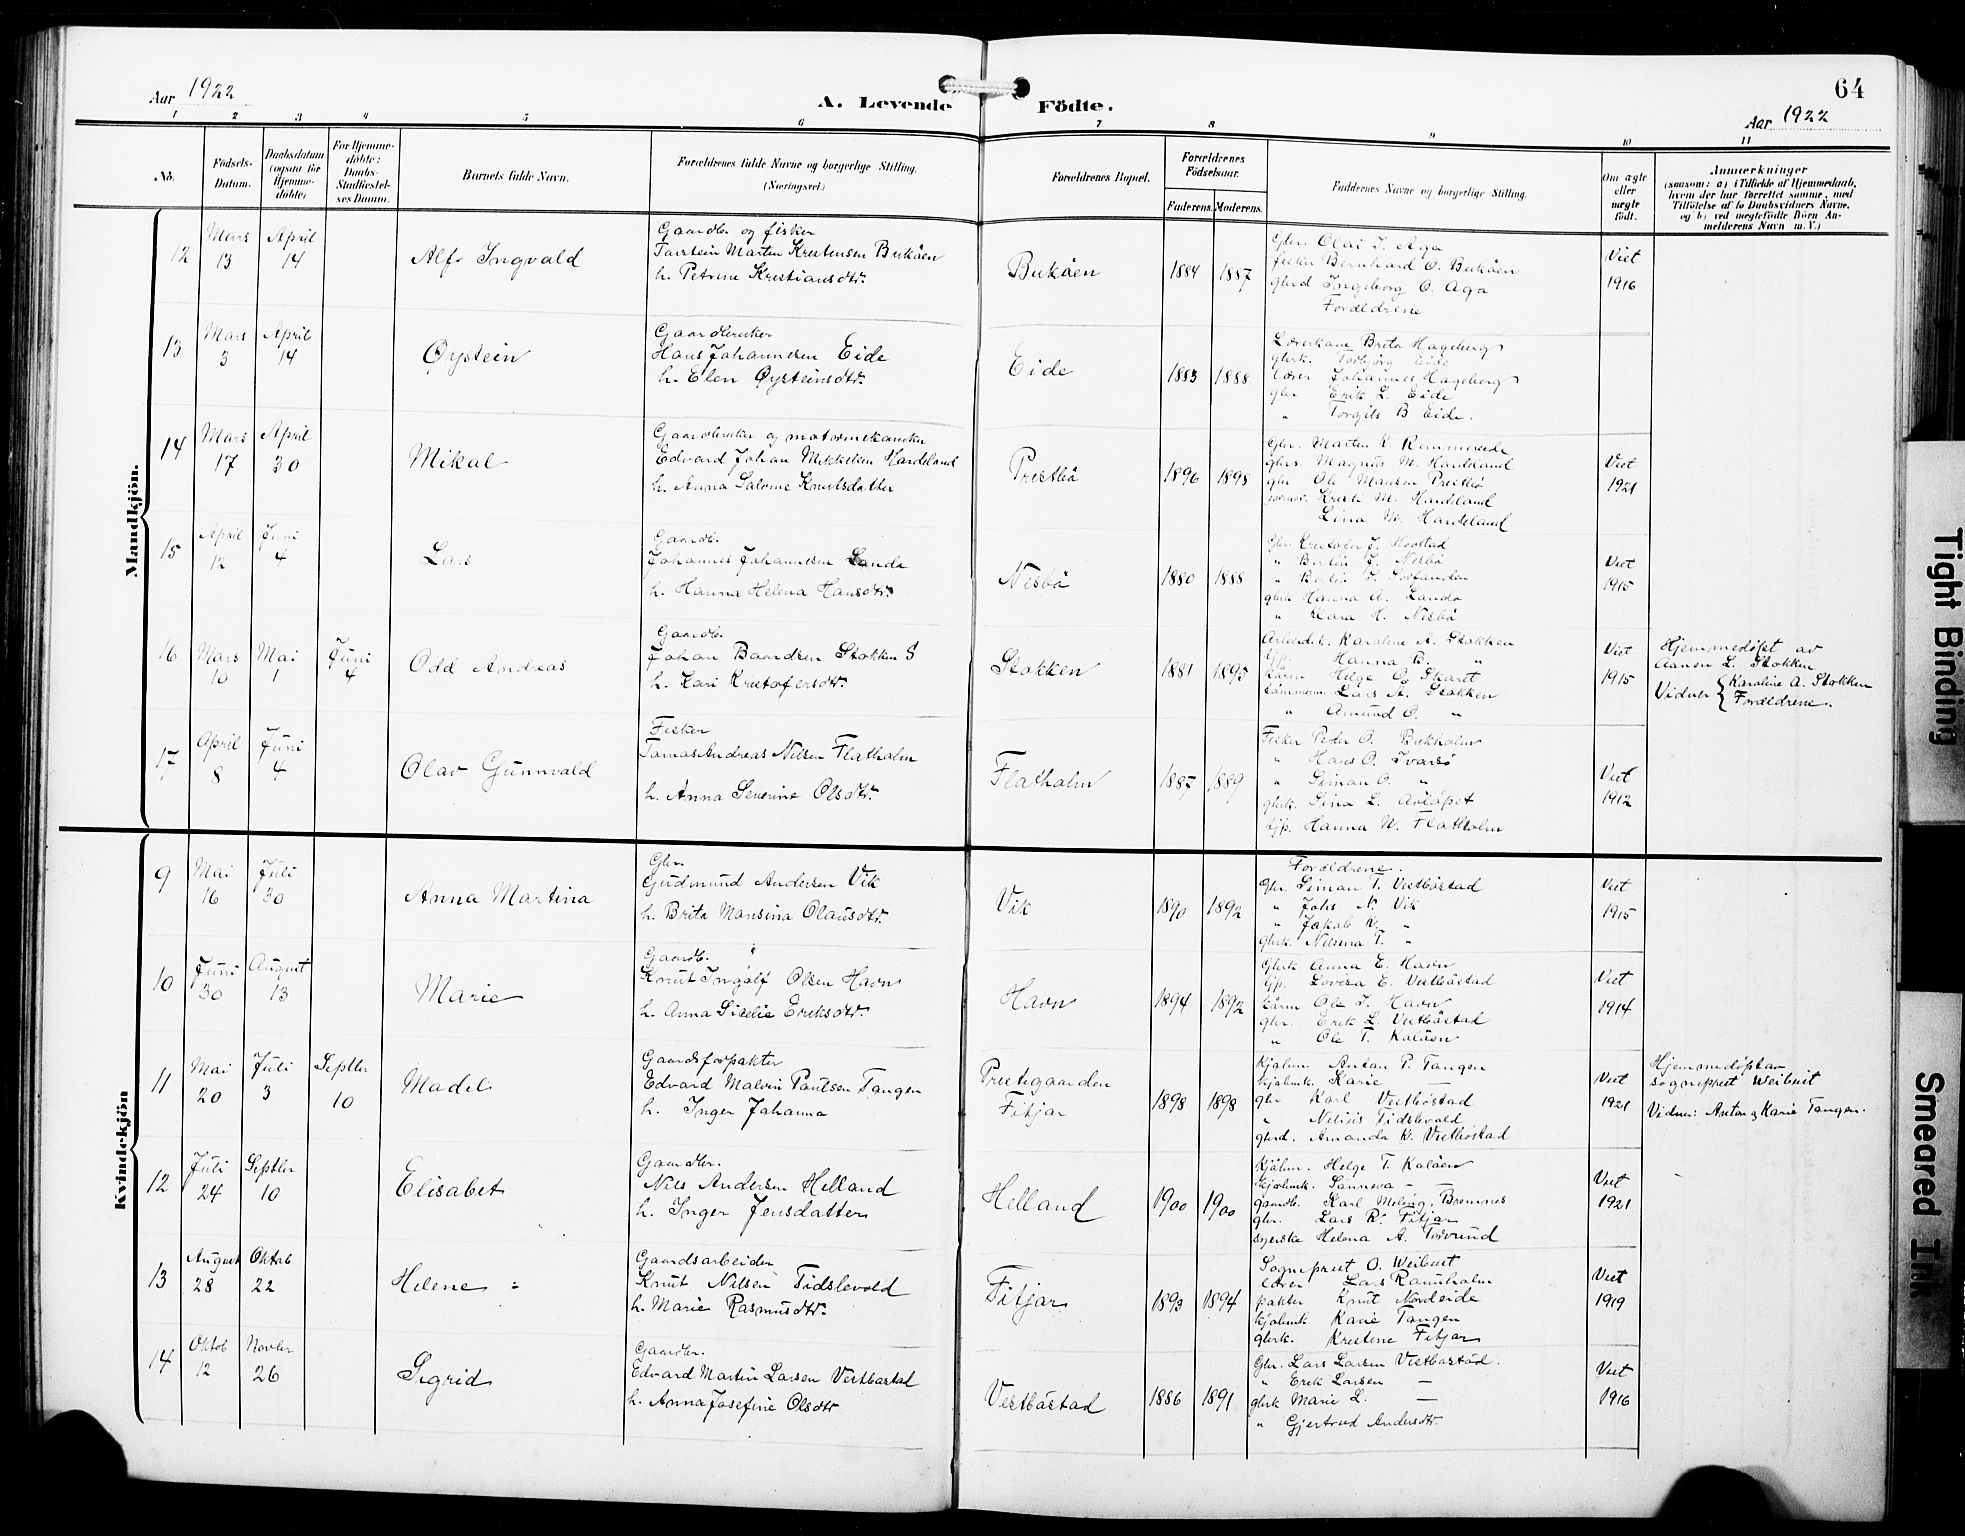 64
Aar 1922
A. Levende Födte.
Aar 1922
1 2 3 4 5 6 7 8 9 10 11
No.
Födsels-Datum.
Daabsdatum (ogsaa for Hjemme-döbte)
For Hjemme-döbte: Daabs-Stadfæstel-ses Datum.
Barnets fulde Navn.
Forældrenes fulde Navne og borgerlige Stilling.
(Næringsvei.)
Forældrenes Bopæl.
Forældrenes Födselsaar.
Faderens. Moderens.
Faddernes Navne og borgerlige Stilling.
Om ægte eller uægte födt.
Anmærkninger
(saasom: a) i Tilfælde af Hjemmedaab,
hvem der har forrettet samme, med
Tilföielse af to Daabsvidners Navne,
og b) ved uægtefödte Börn An-
melderens Navn m. V.)
Mandkjön.
12
Mars 13
April 14
Alf Ingvald
Gaardbr og fisker
Torstein Marten Krestensen Bukåen
h. Petrine Kristiansdtr.
Bukåen
1884 1887
Gbr. Olai J. Aga
fisker Bernhard O. Bukåen
gbrd Ingeborg O. Aga
Forældrene
Viet 1916
13
Mars 3
April 14
Øystein
Gaardbruker
Hans Johannesen Eide
h. Elen Øysteinsdtr.
Eide
1883 1888
Lærerkone Brita Hageberg
gbrk. Torbjörg Eide
lærer Johannes Hageberg
gbr Erik L. Eide
" Torgils B Eide.
14
Mars 17
April 30
Mikal
Gaardbruker og motormekaniker
Edvard Johan Mikkelsen Hardeland
h. Anna Salome Knutsdatter
Prestbö
1896 1898
Gbr. Marten K. Rimmereide
gbrs. Magnus M. Hardeland
gbr Ole Mansen Prestbö
Kristi M. Hardeland
Lina M. Hardeland
Viet 1921
15
April 12
Juni 4
Lars
Gaardb.
Johannes Johannesen Landa
h. Hanna Helena Hansdtr.
Nesbö
1880 1888
Gbr Kristofer J. Hovstad
" Bertin J. Nesbö
" Bertin S. Sörfonden
gbrk Hanna A. Landa
" Klara H. Nesbö
Viet 1915
16
Mars 10
Mai 1
Juni 4
Odd Andreas
Gaardb.
Johan Baardsen Stokken S
h. Kari Kristofersdtr.
Stokken
1881 1895
Arbeidsk. Karoline A. Stokken
tjp. Hanna B. "
kårm Helge O. Skaret
tömmerm. Lars A. Stokken
" Amund O. "
Viet 1915
Hjemmedöpt av
Aanen L. Stokken
Vidner { Karoline A. Stokken
Forældrene.
17
April 8
Juni 4
Olav Gunnvald
Fisker
Tomas Andreas Nilsen Flatholm
h. Anna Severine Olsdtr.
Flatholm
1887 1889
Fisker Peder O. Bukholm
" Hans O. Ivarsö
" Simon O. "
gbrk. Sina L. Aslöpet
tjp. Hanna N. Flatholm
Viet 1912
Kvindekjön
9
Mai 16
Juli 30
Anna Martina
Gbr.
Gudmund Andersen Vik
h. Brita Mansina Olausdtr.
Vik
1890 1892
Forældrene.
Gbr. Simon T. Vestböstad
" Johs N. Vik
" Jakob K. "
gbrk. Nilsina T. "
Viet 1915
10
Juni 30
August 13
Marie
Gaardb.
Knut Ingolf Olsen Havn
h. Anna Sicelie Eriksdtr.
Havn
1894 1892
Gbrk Anna E. Havn
tjp. Lovisa E. Vestböstad
kårm Ole J. Havn
gbr. Erik L. Vestböstad
" Ole T. Kalåen
Viet 1914
11
Mai 20
Juli 3
Septbr 10
Madel
Gaardsforpakter
Edvard Malvin Paulsen Tangen
h. Inger Johanna
Prestegaarden
Fitjar
1898 1898
Kjøbm. Anton P. Tangen
kjøbmk. Karie —
gbr Karl Vestböstad
" Nelius Tidslevold
gbrd. Amanda K. Vestbostad
Viet 1921
Hjemmedöpt av
sogneprest Weibust
Vidner: Anton og Karie Tangen.
12
Juli 24
Septbr 10
Elisabet
Gaardbr.
Nils Andersen Helland
h. Inger Jensdatter
Helland
1900 1900
Kjöbm. Helge T. Kalåen
kjøbmk. Sunneva — —
gaardb. Karl Meling, Bremnes
gbr. Lars R. Fitjar
syerske Helena A. Torvund
Viet 1921
13
August 28
Oktob 22
Helene
Gaardsarbeider
Knut Nilsen Tidslevold
h. Marie Rasmusdtr.
Fitjar
1893 1894
Sogneprest O. Weibust
lærer Lars Raunholm
pakter Knut Nordeide
kjøbmk Karie Tangen
gbrk. Kristine Fitjar
Viet 1919
14
Oktob 12
Novbr 26
Sigrid
Gaardbr.
Edvard Martin Larsen Vestbostad
h. Anna Josefine Olsdtr
Vestböstad
1886 1891
Gbr. Lars Larsen Vestbostad.
" Erik Larsen —
gbrk Marie L. —
" Gjertrud Andersdtr.
Viet 1916
Tight Binding
Smeared Ink